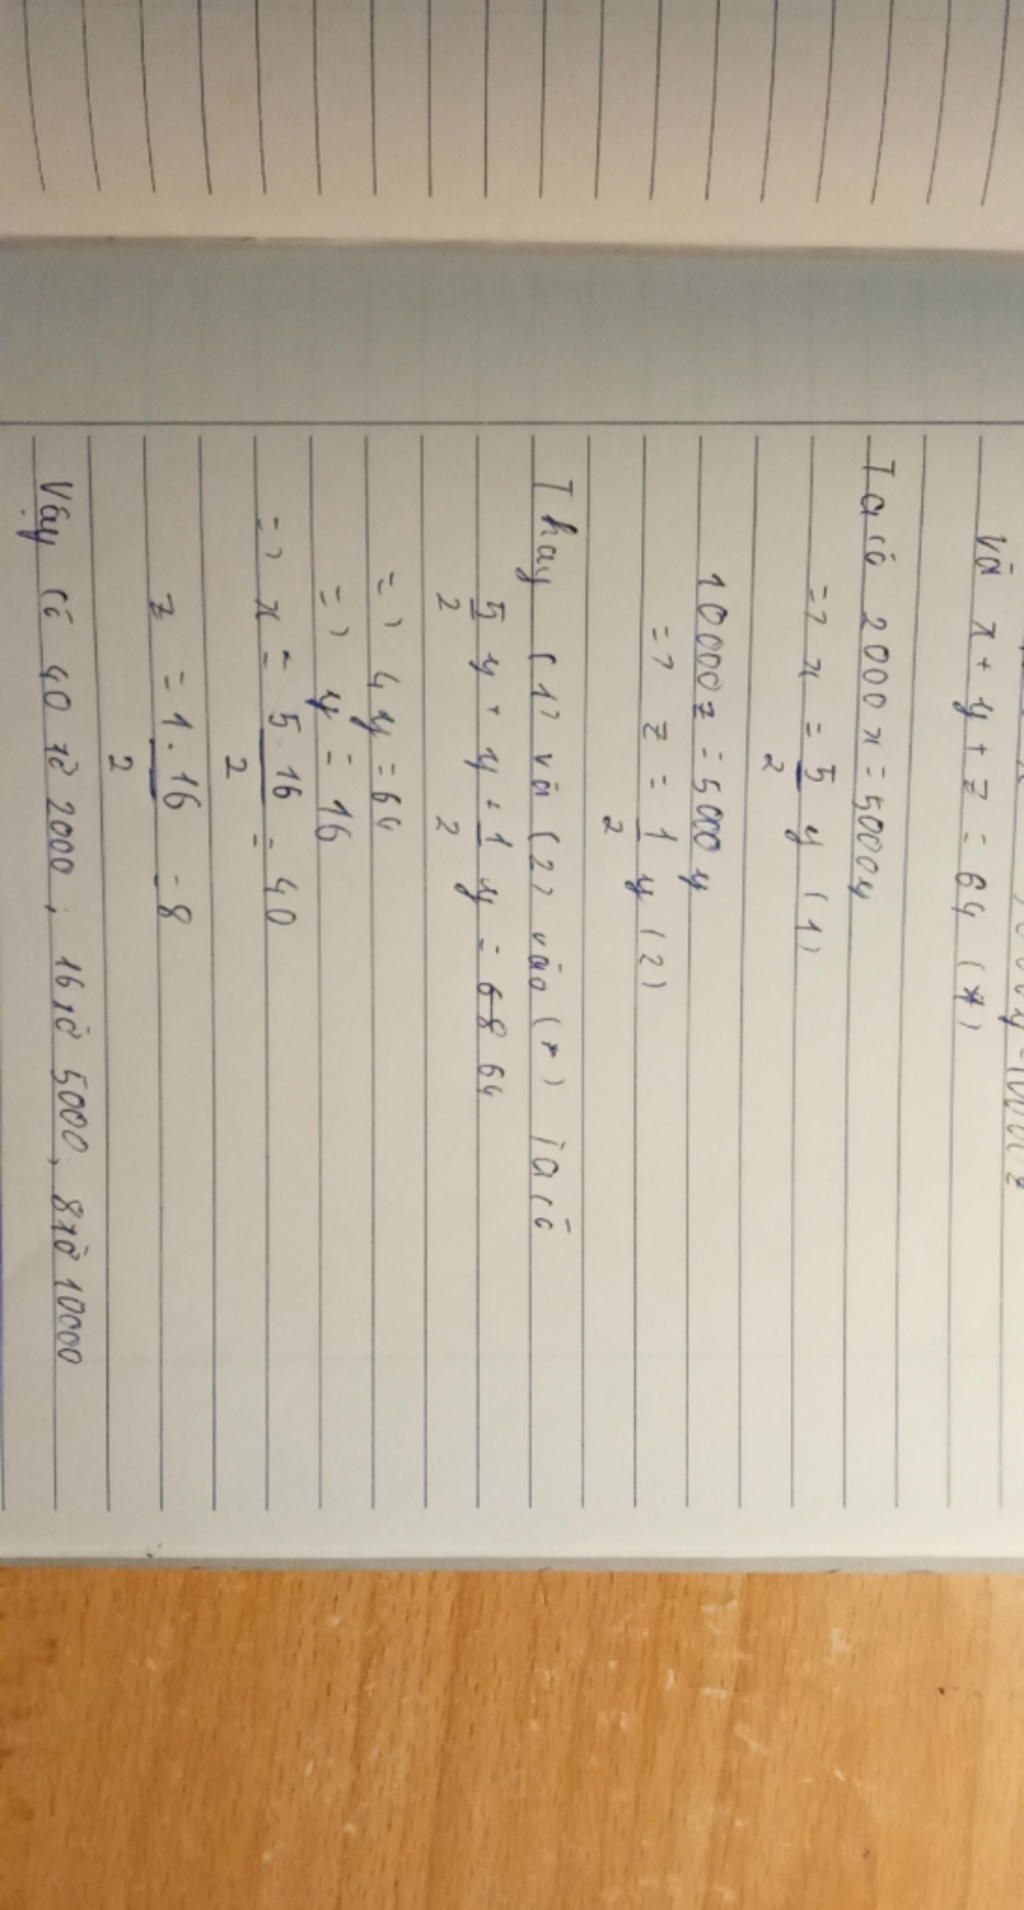 và x + y + z = 64 (*)
Ta có 2000x = 5000y
=> x = 5/2 y (1)
10000z = 5000y
=> z = 1/2 y (2)
Thay (1) và (2) vào (*) ta có
5/2 y + y + 1/2 y = 68 64
=> 4y = 64
=> y = 16
=> x = 5.16/2 = 40
z = 1.16/2 = 8
Vậy có 40 tờ 2000; 16 tờ 5000, 8 tờ 10000